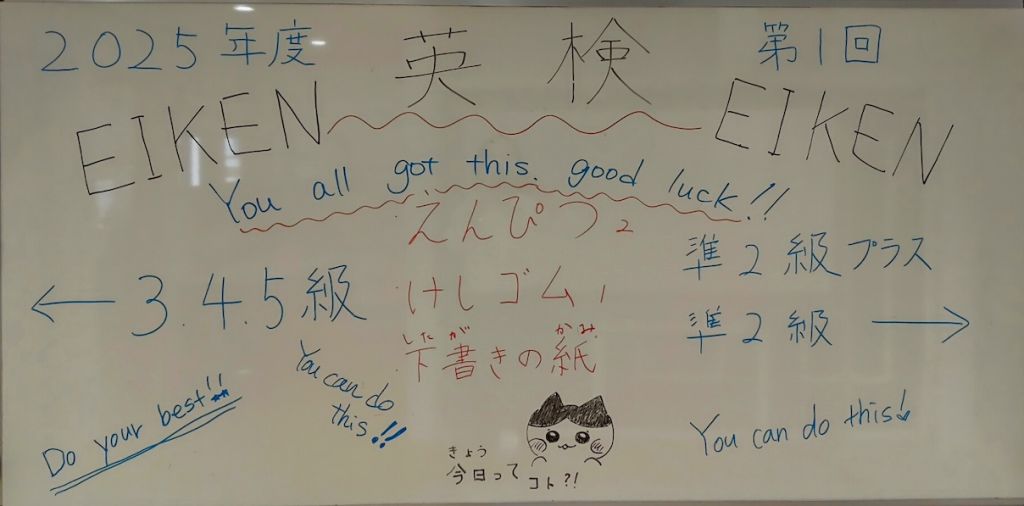 2025年度 英検 第1回
EIKEN EIKEN
You all got this. good luck!!
えんぴつ2
けしゴム1
したが かみ
下書きの紙
← 3.4.5級
準2級プラス
準2級 →
Do your best!!
You can do
this!!
You can do this!
きょう
今日って コト?!